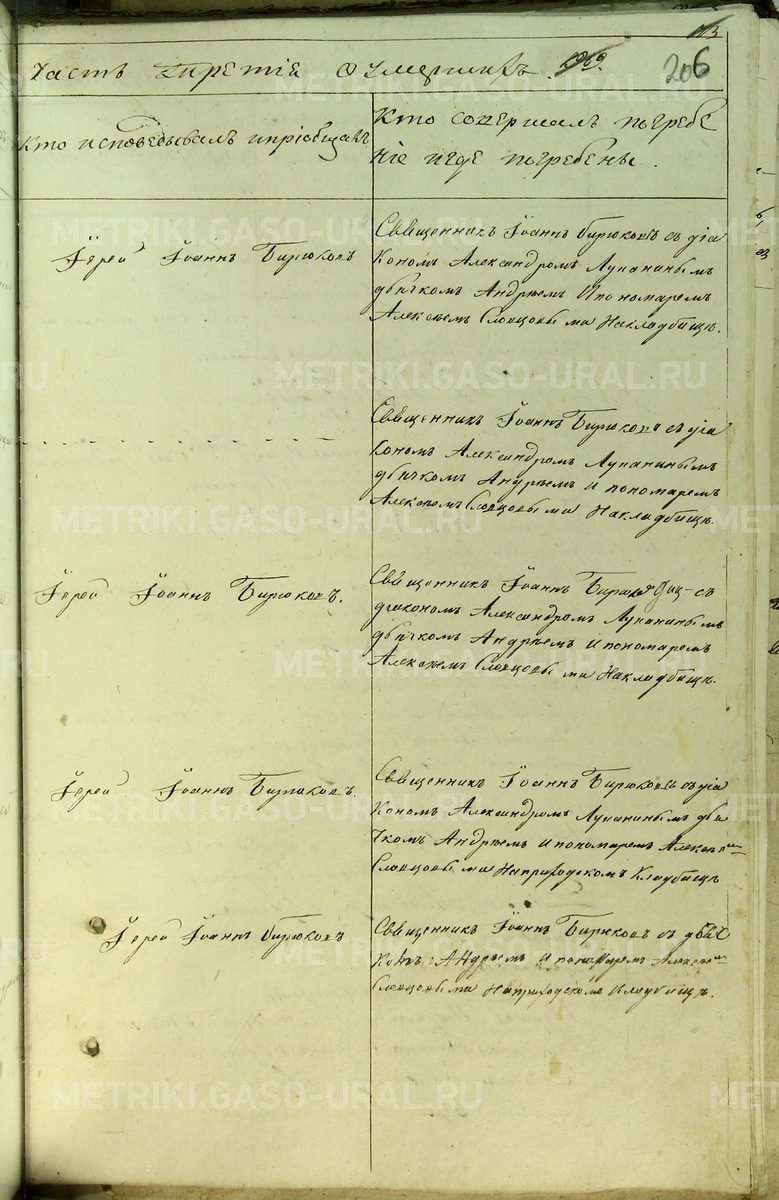 113
Часть третія О умершихъ. 1869.
206
Кто исповедывалъ и пріобщалъ
Кто совершалъ погребе
ніе и где погребены.
Іерей Іоаннъ Бирюковъ
Священникъ Іоаннъ Бирюковъ съ діа
кономъ Александромъ Лупанинымъ
дьячкомъ Андреемъ и пономаремъ
Алексеемъ Словцовыми На кладбище.
Священникъ Іоаннъ Бирюковъ съ діа
кономъ Александромъ Лупанинымъ
дьячкомъ Андреемъ и пономаремъ
Алексеемъ Словцовыми На кладбище.
Іерей Іоаннъ Бирюковъ.
Священникъ Іоаннъ съ
діакономъ Александромъ Лупанинымъ
дьячкомъ Андреемъ и пономаремъ
Алексеемъ Словцовыми На кладбище.
Іерей Іоаннъ Бирюковъ.
Священникъ Іоаннъ Бирюковъ съ діа
кономъ Александромъ Лупанинымъ дья
чкомъ Андреемъ и пономаремъ Алексеемъ
Словцовыми На приходскомъ кладбище
Іерей Іоаннъ Бирюковъ
Священникъ Іоаннъ Бирюковъ съ дьяч
комъ Андреемъ и пономаремъ Алексеемъ
Словцовыми На приходскомъ кладбище.
METRIKI.GASO-URAL.RU